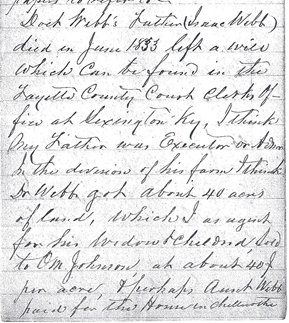 Doct Webb's Father (Isaac Webb)
died in June 1833 left a will
which can be found in the
Fayette County Court Clerks Of-
fice at Lexington Ky, I think
my Father was Executor or Admr
In the division of his farm I think
Dr Webb got about 40 acres
of land, which I as agent
for his widow & children, sold
to O M Johnson, at about 40$
per acre, & perhaps Aunt Webb
paid for this House in Chillicothe